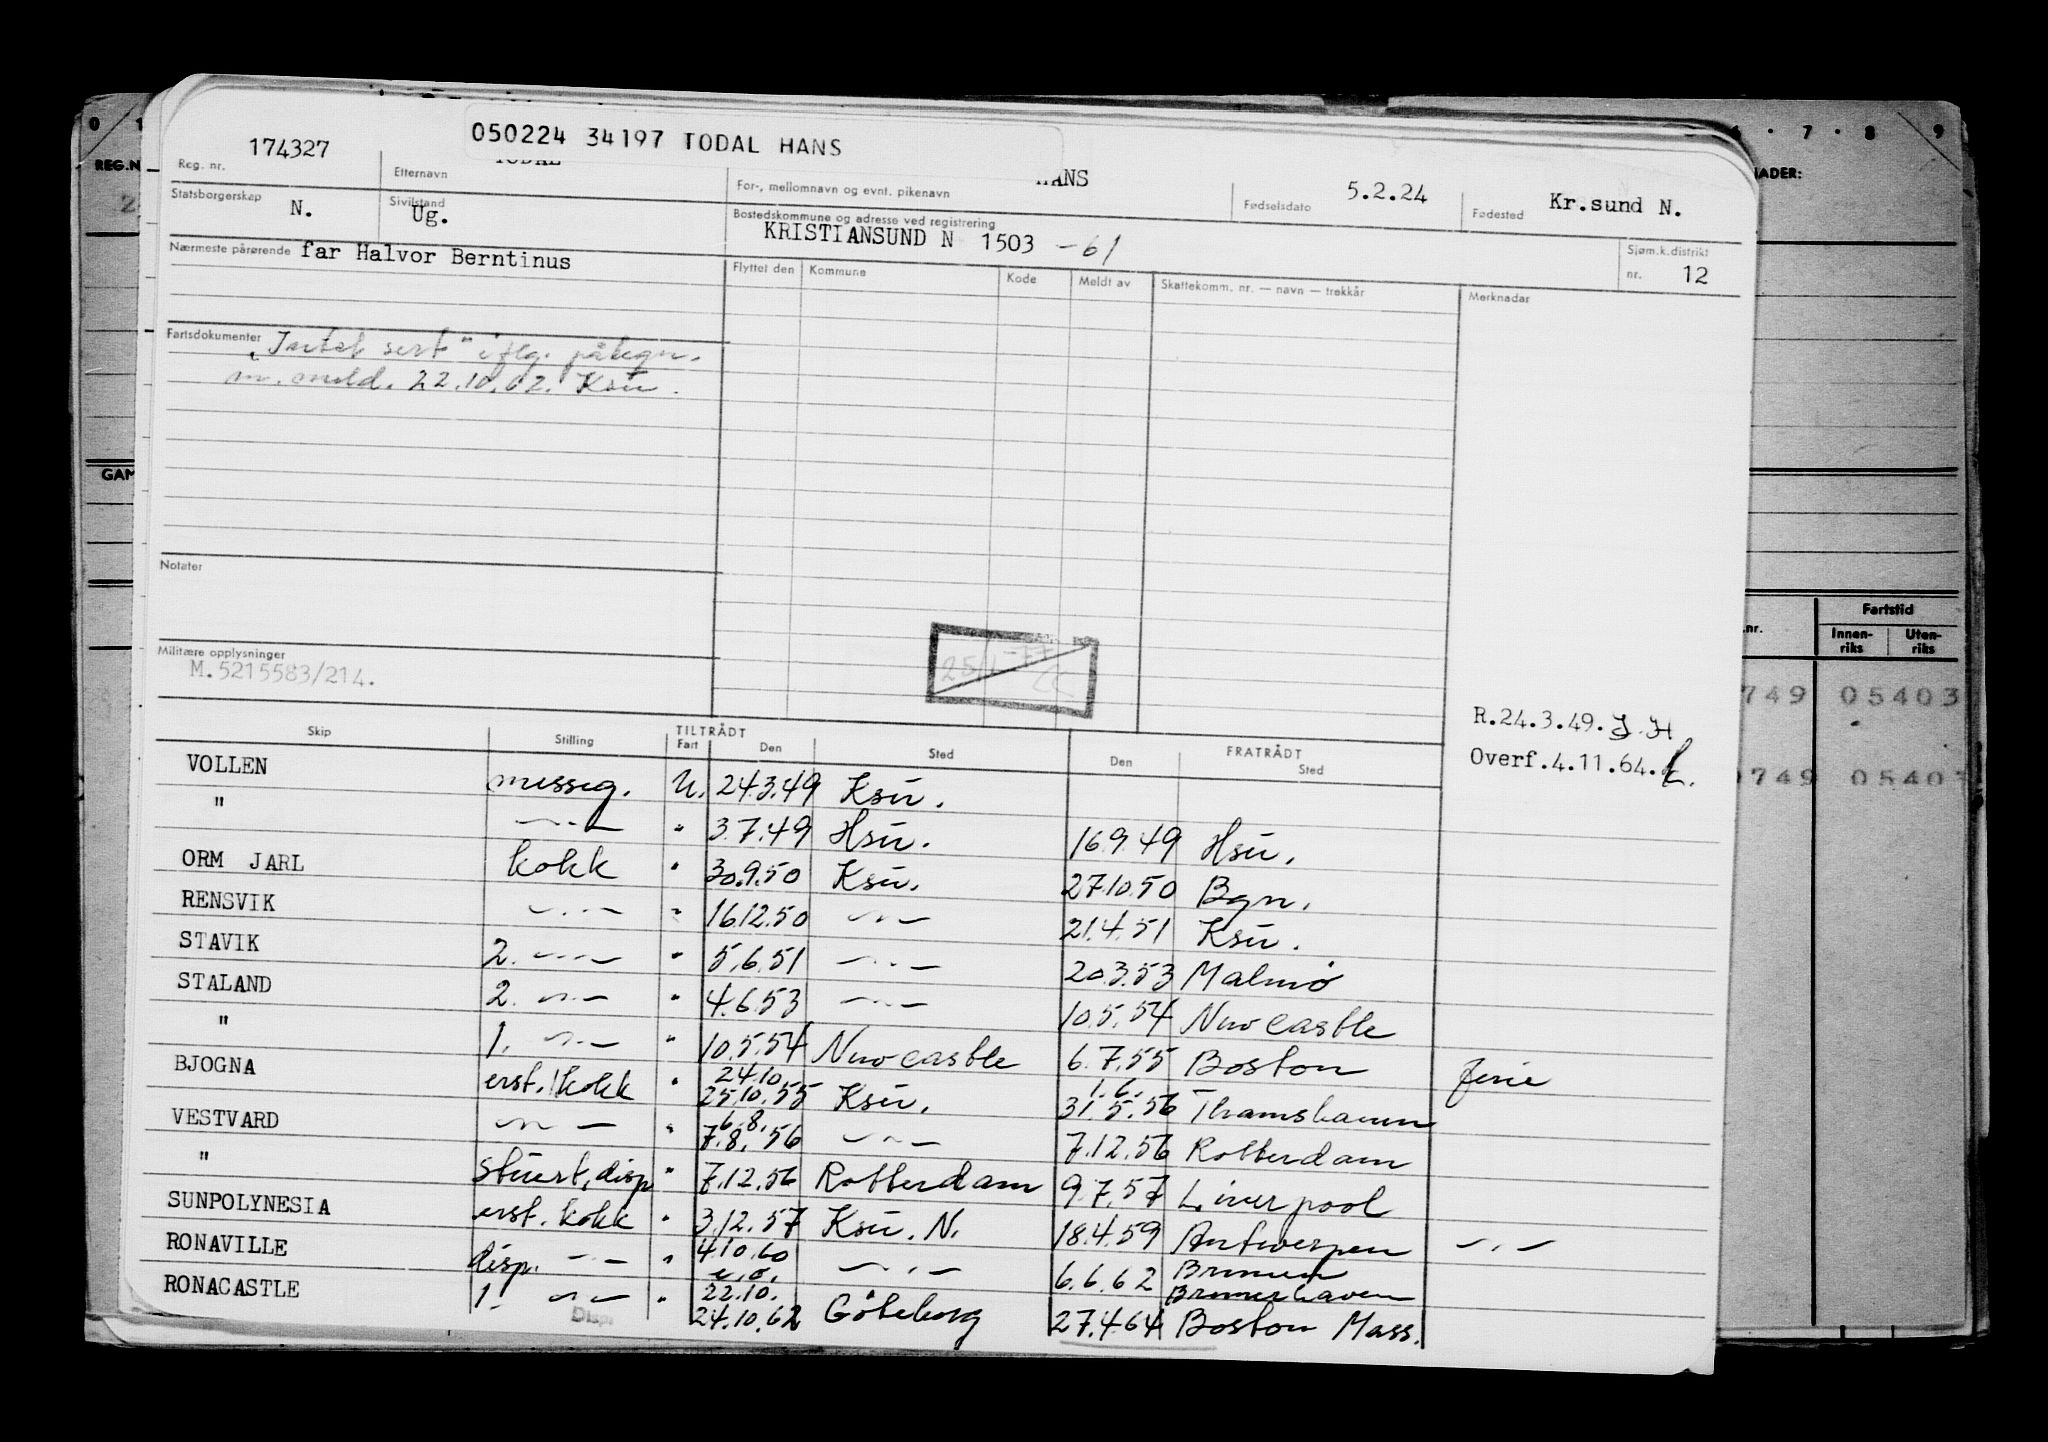 050224 34197 TODAL HANS
Reg. nr. 174327
Etternavn TODAL
For-, mellomnavn og evnt. pikenavn HANS
Fødselsdato 5.2.24
Fødested Kr.sund N.
Statsborgerskap N.
Sivilstand Ug.
Bostedskommune og adresse ved registrering
KRISTIANSUND N 1503 -61
Sjøm.k.distrikt nr. 12
Nærmeste pårørende far Halvor Berntinus
Flyttet den Kommune Kode Meldt av Skattekomm. nr. — navn — trekkår Merknader
Fartsdokumenter "Intet sert" iflg. påtegn.
m. meld. 22.10.62. Ksu.
Notater
25/1-77
Militære opplysninger
M.5215583/214.
R.24.3.49. J.H
Overf.4.11.64.
TILTRÅDT FRATRÅDT
Skip Stilling Fart Den Sted Den Sted
VOLLEN messeg. U. 24.3.49 Ksu.
" —..— " 3.7.49 Hsu. 16.9.49 Hsu.
ORM JARL kokk " 30.9.50 Ksu. 27.10.50 Bgn.
RENSVIK —..— " 16.12.50 —..— 21.4.51 Ksu.
STAVIK 2. —..— " 5.6.51 —..— 20.3.53 Malmö
STALAND 2. —..— " 4.6.53 —..— 10.5.54 Newcastle
" 1. —..— " 10.5.54 Newcastle 6.7.55 Boston ferie
BJOGNA erst. kokk " 24.10. 25.10.55 Ksu. 1.6. 31.5.56 Thamshavn
VESTVARD —..— " 6.8. 7.8.56 —..— 7.12.56 Rotterdam
" stuert, disp " 7.12.56 Rotterdam 9.7.57 Liverpool
SUNPOLYNESIA erst. kokk " 3.12.57 Ksu. N. 18.4.59 Antwerpen —..—
RONAVILLE disp. —..— " 4.10.60 e.o. —..— 6.6.62 Bremen Bremerhaven
RONACASTLE 1. —..— " 22.10. 24.10.62 Göteborg 27.4.64 Boston Mass.
Disp.
0 1
7 · 8 9
REG.N
NADER:
GAM
nr.
Fartstid
Innen-riks Uten-riks
749 05403
749 05403